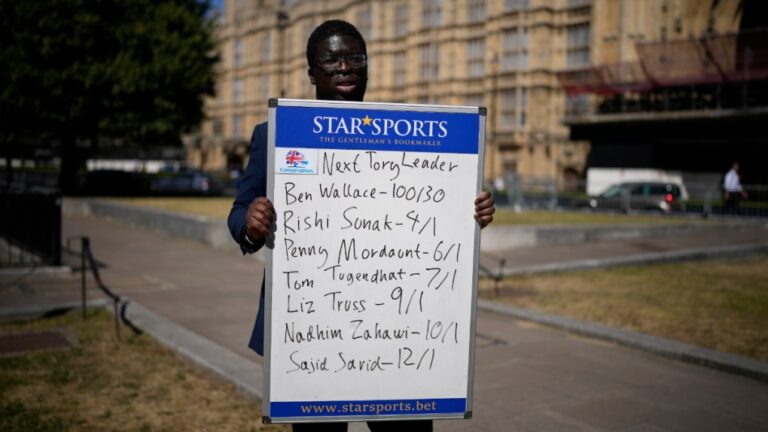 STAR★SPORTS
THE GENTLEMAN'S BOOKMAKER
Conservatives
Next Tory Leader
Ben Wallace - 100/30
Rishi Sunak - 4/1
Penny Mordaunt - 6/1
Tom Tugendhat - 7/1
Liz Truss - 9/1
Nadhim Zahawi - 10/1
Sajid Savid - 12/1
www.starsports.bet